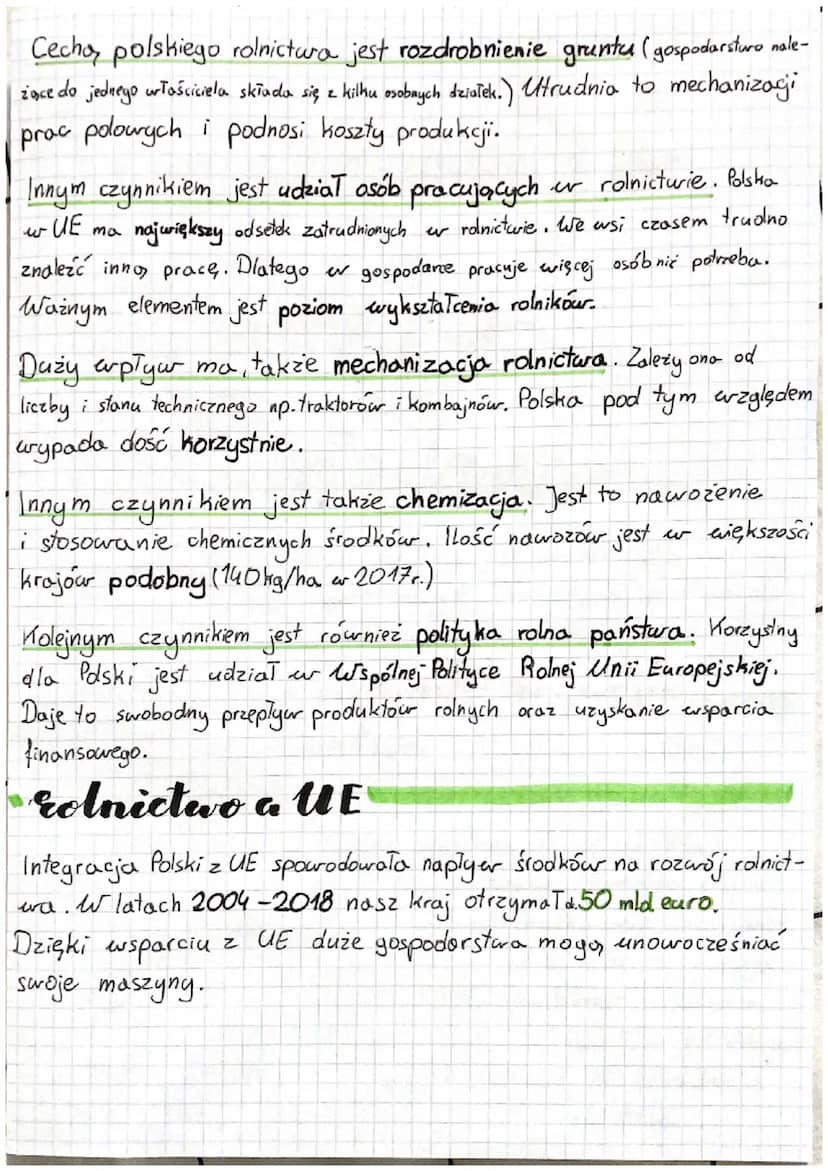 Cechą polskiego rolnictwa jest rozdrobnienie gruntu (gospodarstwo nale-
żące do jednego właściciela składa się z kilku osobnych działek.) Utrudnia to mechanizacji
prac polowych i podnosi koszty produkcji.
Innym czynnikiem jest udział osób pracujących w rolnictwie. Polska
w UE ma największy odsetek zatrudnionych w rolnictwie. We wsi czasem trudno
znaleźć inną pracę. Dlatego w gospodarce pracuje więcej osób niż potrzeba.
Ważnym elementem jest poziom wykształcenia rolników.
Duży wpływ ma, także mechanizacja rolnictwa. Zależy ona od
liczby i stanu technicznego np. traktorów i kombajnów. Polska pod tym względem
wypada dość korzystnie.
Innym czynnikiem jest także chemizacja. Jest to nawożenie
i stosowanie chemicznych środków. Ilość nawozów jest w większości
krajów podobny (140kg/ha w 2017r.)
Kolejnym czynnikiem jest również polityka rolna państwa. Korzystny
dla Polski jest udział w Wspólnej Polityce Rolnej Unii Europejskiej.
Daje to swobodny przepływ produktów rolnych oraz uzyskanie wsparcia
finansowego.
rolnictwo a UE
Integracja Polski z UE spowodowała napływ środków na rozwój rolnict-
wa. W latach 2004-2018 nasz kraj otrzymał 50 mld euro.
Dzięki wsparciu z UE duże gospodarstwa mogą unowocześniać
swoje maszyny.